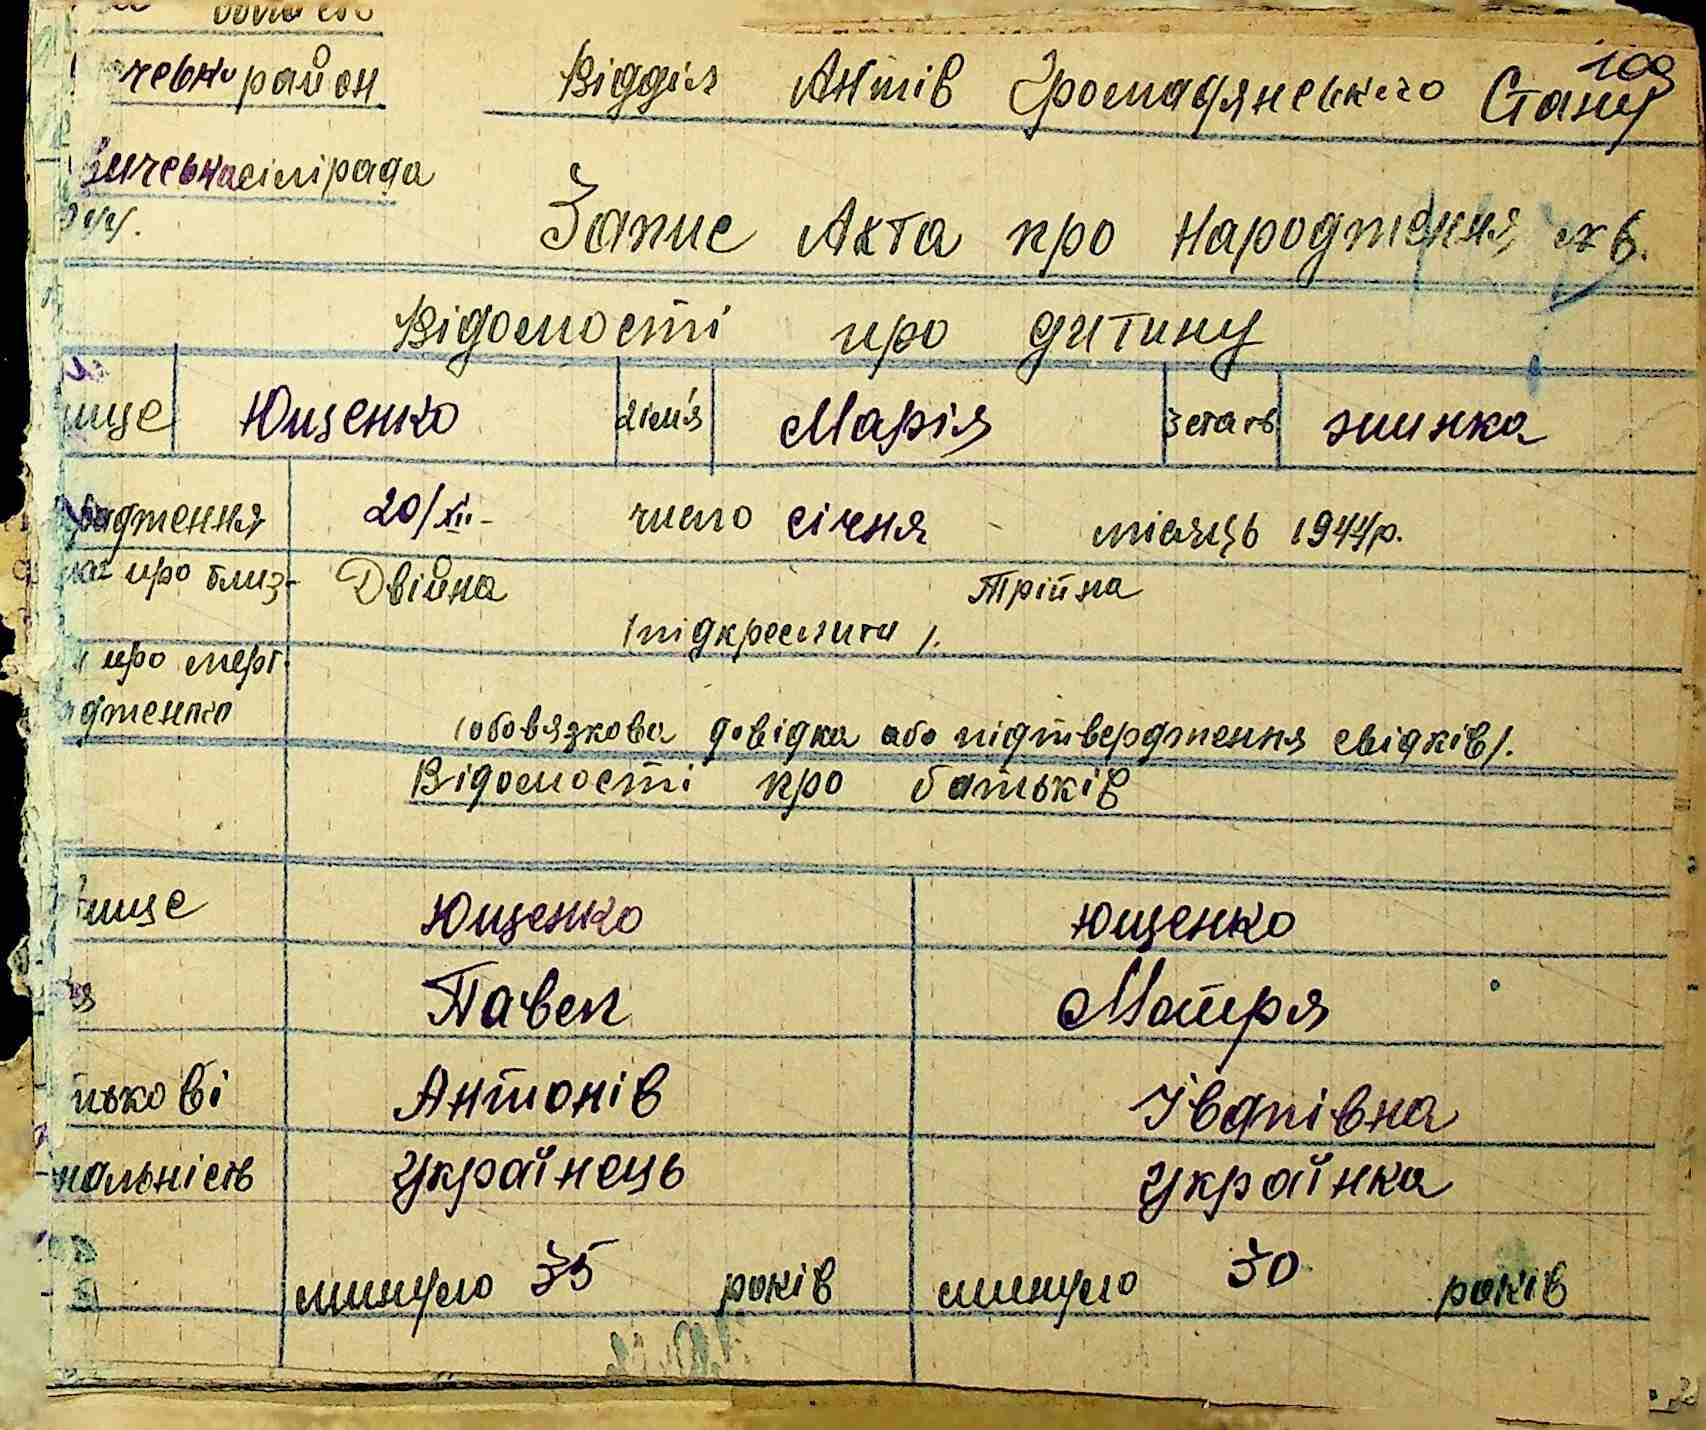 район Відділ Актів Громадянського Стану
100
сільрада
Запис Акта про народження № 6.
Відомості про дитину
Ющенко ім'я Марія стать жинка
20/XII- число січня місяць 1944р.
про близ- Двійна Трійна
(підкреслити).
про мерт.
(обов'язкова довідка або підтвердження свідків).
Відомості про батьків
Ющенко Ющенко
Павел Мотря
Антонів Іванівна
Українець Українка
минуло 35 років минуло 30 років